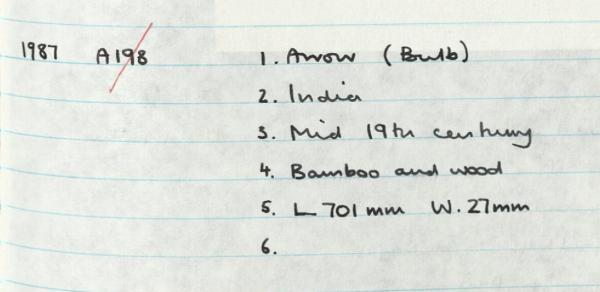 1987 A198 1. Arrow (Bulb)
2. India
3. Mid 19th century
4. Bamboo and wood
5. L 701mm W. 27mm
6.